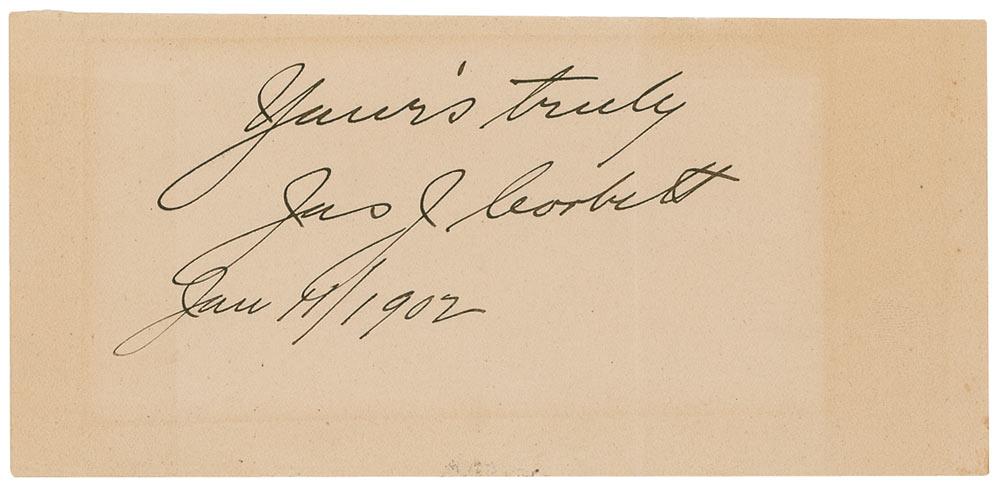 Your's truly
Jas J Corbett
Jan 14/1902